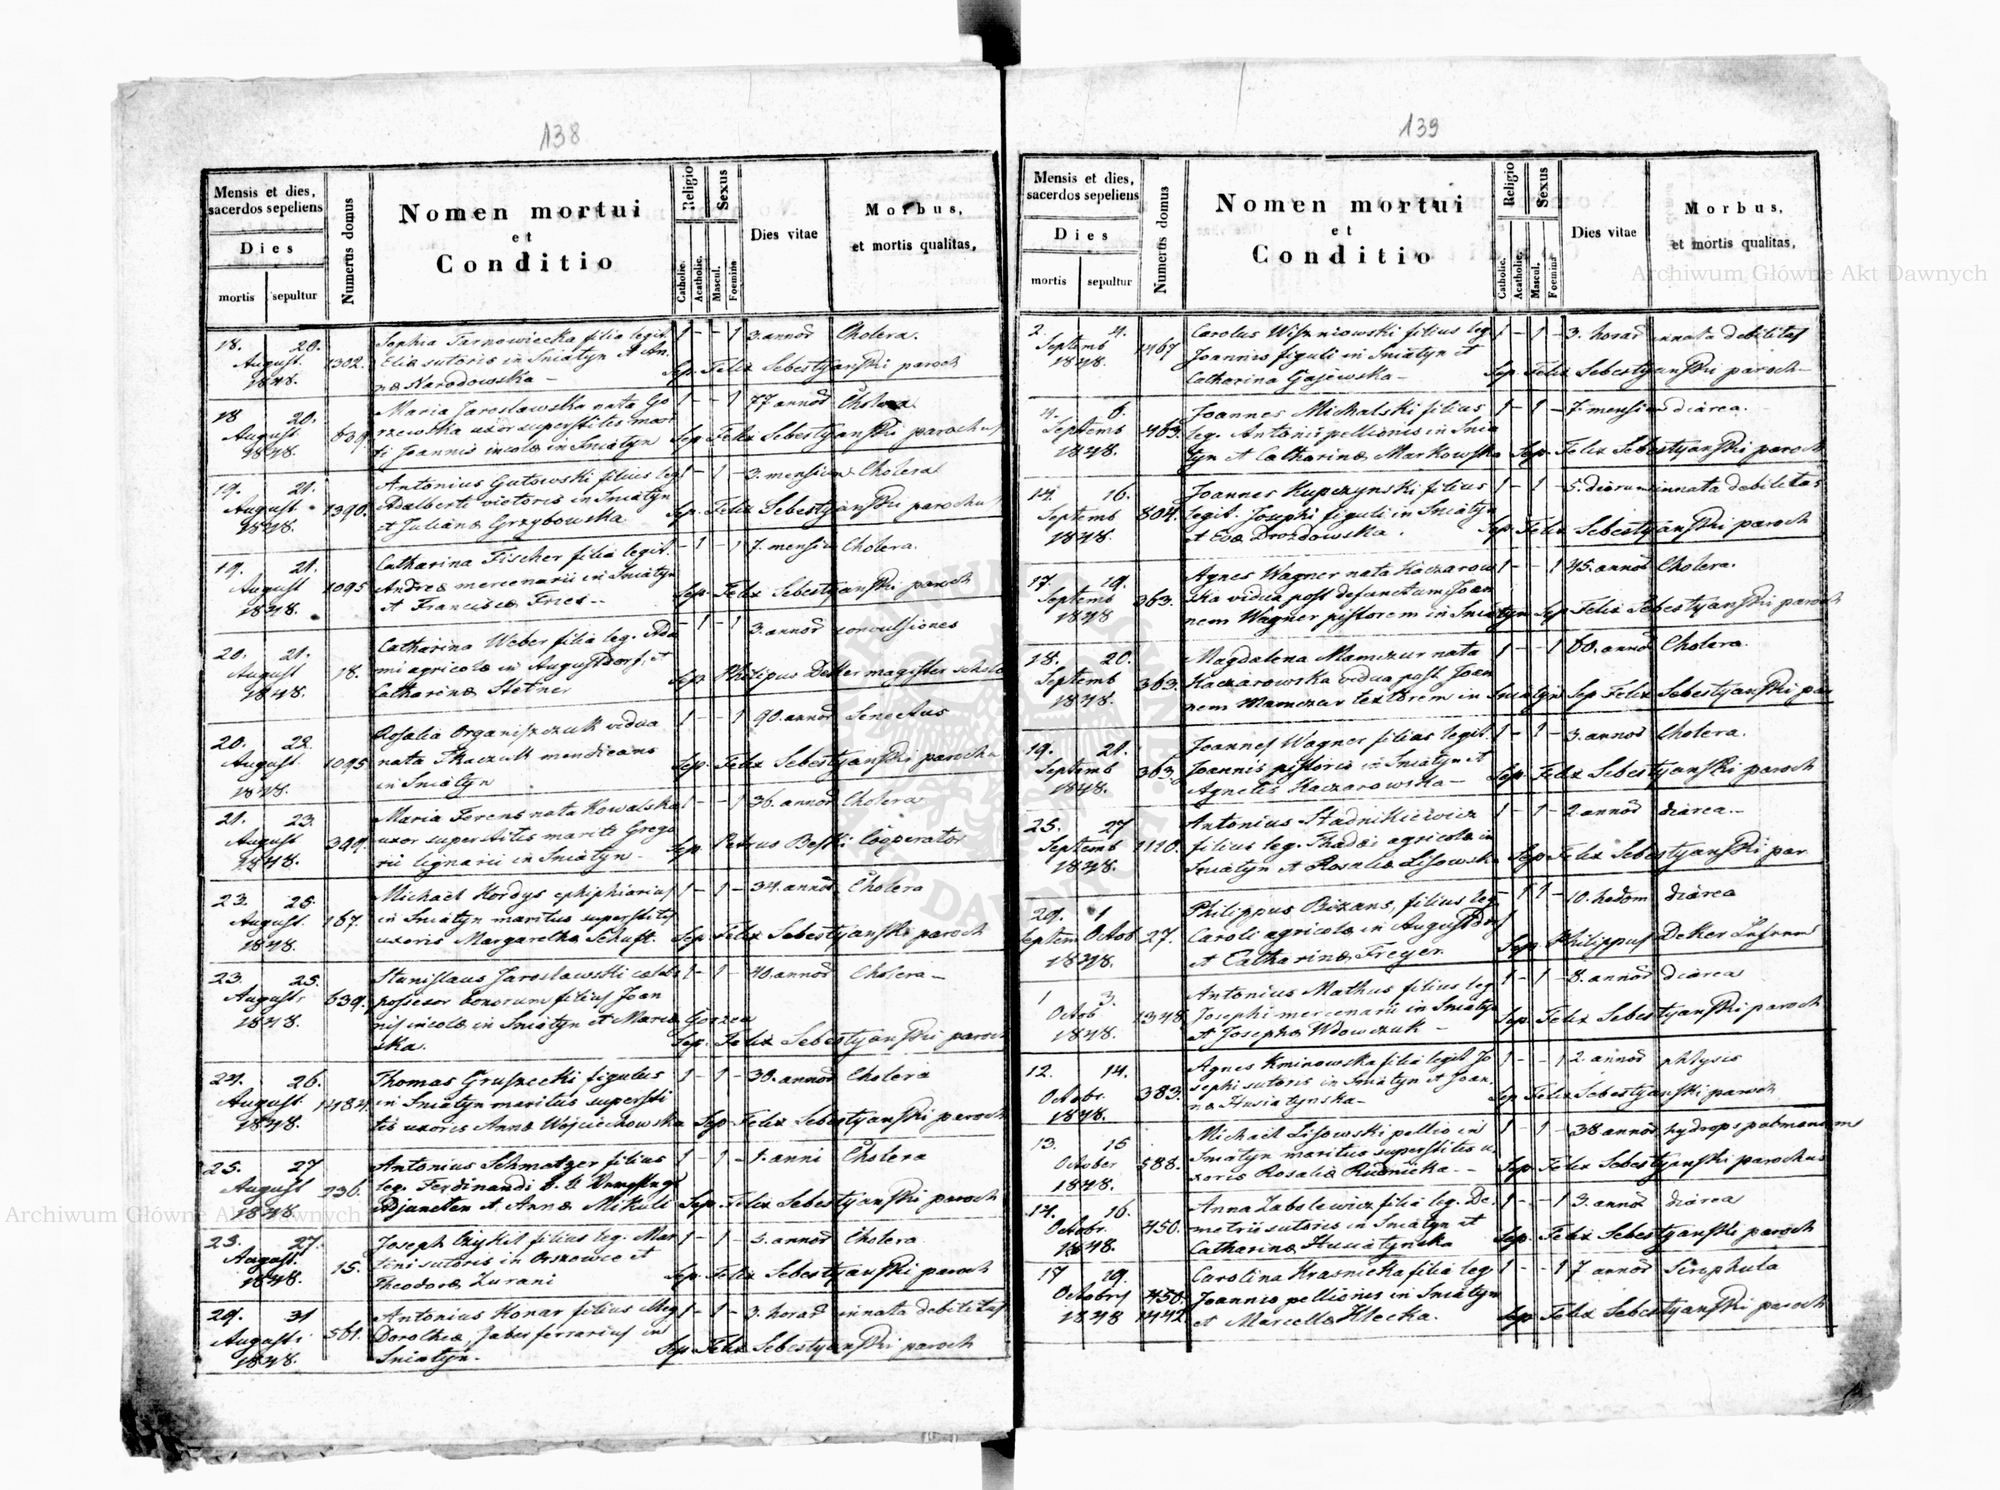 138
Mensis et dies,
sacerdos sepeliens
Dies
mortis sepultur
Numerus domus
Nomen mortui
et
Conditio
Religio
Catholic.
Acatholic.
Sexus
Mascul.
Foemina
Dies vitae
Morbus,
et mortis qualitas,
18. 20. Sophia Tarnowiecka filia legit. 1 - - 1 3. annor Cholera.
August. 1302. Eliæ sutoris in Sniatyn et An,
1848. næ Narodowska - Sep. Felix Sebestyanski paroch
18 20. Maria Jaroslawska nata Go 1 - - 1 77 annor Cholera
August. 639 rzewska uxor superstitis mari
1848. ti Joannis incolæ in Sniatyn Sep. Felix Sebestyanski parochus
19. 21. Antonius Gutowski filius leg 1 - 1 - 3. mensium Cholera
August 1390. Adalberti victoris in Sniatyn
1848. et Julianæ Grzybowska Sep. Felix Sebestyanski parochus
19. 21. Catharina Fischer filia legit. - 1 - 1 7. mensiu Cholera.
August 1095 Andreæ mercenarii in Sniatyn
1848. et Franciscæ Fries - Sep. Felix Sebestyanski paroch
20. 21. Catharina Weber filia leg. Ada - 1 - 1 3. annor convulsiones
August 18. mi agricolæ in Augustdorf, et
1848. Catharinæ Stetner Sep. Philipus Decker magister schola
20. 22. Rosalia Organiszczuk vidua 1 - - 1 90. annor Senectus
August. 1095 nata Tkaczuk mendicans
1848. in Sniatyn Sep. Felix Sebestyanski parochu
21. 23. Maria Ferens nata Kowalska 1 - - 1 36. annor Cholera
August 399. uxor superstitis mariti Grego
1848. rii lignarii in Sniatyn - Sep. Petrus Beski Cooperator
23. 25. Michaël Kordys ephiphiarius 1 - 1 - 34. annor Cholera
August. 167. in Sniatyn maritus superstitis
1848. uxoris Margarethæ Schust. Sep. Felix Sebestyanski paroch
23. 25. Stanislaus Jaroslawski cælebs 1 - 1 - 40. annor Cholera -
August. 639. possesor bonorum filius Joan
1848. nis incolæ in Sniatyn et Mariæ Gorzew
ska. Sep. Felix Sebestyanski paroch
24. 26. Thomas Gruszecki figulus 1 - 1 - 30. annor Cholera
August. 1484. in Sniatyn maritus supersti
1848. tis uxoris Annæ Wojciechowska Sep. Felix Sebestyanski paroch
25. 27 Antonius Schmatzer filius 1 - 1 - 1. anni Cholera
August 236. leg. Ferdinandi
1848. Adjuncten et Annæ Mikuli Sep. Felix Sebestyanski paroch
25. 27. Joseph filius leg. Mar 1 - 1 - 3. annor Cholera
August. 15. tini sutoris in Orszowce et
1848. Theodoræ Zurani Sep. Felix Sebestyanski paroch
29. 31 Antonius Konar filius illeg 1 - 1 - 3. horar innata debilitas
August. 561. Dorotheæ, faber ferrarius in
1848. Sniatyn. Sep. Felix Sebestyanski paroch
139
Mensis et dies,
sacerdos sepeliens
Dies
mortis sepultur
Numerus domus
Nomen mortui
et
Conditio
Religio
Catholic.
Acatholic.
Sexus
Mascul.
Foemina
Dies vitae
Morbus,
et mortis qualitas,
2. 4. Carolus Wiszniowski filius leg 1 - 1 - 3. horar innata debilitas
Septemb 1467 Joannis figuli in Sniatyn et
1848. Catharina Gajewska - Sep. Felix Sebestyanski paroch -
4. 6. Joannes Michalski filius 1 - 1 - 7. mensium diarea.
Septemb 463. leg. Antonii pellionis in Snia
1848. tyn et Catharinæ Markowska Sep. Felix Sebestyanski paroch
14. 16. Joannes Kupczynski filius 1 - 1 - 5. dierum innata debilitas
Septemb 804. legit. Josephi figuli in Sniatyn
1848. et Evæ Drozdowska. Sep. Felix Sebestyanski paroch
17. 19. Agnes Wagner nata Kaczarow 1 - - 1 45. annor Cholera.
Septemb 363. ska vidua post defunctum Joan
1848 nem Wagner pistorem in Sniatyn Sep Felix Sebestyanski paroch
18. 20. Magdalena Mamczur nata 1 - - 1 60. annor Cholera.
Septemb 363. Kaczarowska vidua post Joan
1848. nem Mamczur textorem in Sniatyn Sep Felix Sebestyanski par
19. 21. Joannes Wagner filius legit. 1 - 1 - 3. annor Cholera.
Septemb 363. Joannis pistoris in Sniatyn et
1848. Agnetis Kaczarowska - Sep. Felix Sebestyanski paroch
25. 27 Antonius Stadnikiewicz 1 - 1 - 2 annor diarea -
Septemb 1120. filius leg. Thadei agricolæ in
1848. Sniatyn et Rosaliæ Lisowska Sep Felix Sebestyanski par
29. 1 Philippus Bizans, filius leg - 1 1 - 10. hedom diarea
Septem Octob 27. Caroli agricolæ in Augustdorf
1848. et Catharinæ Freyer. Sep. Philippus Deker
1 3. Antonius Mathus filius leg 1 - 1 - 8. annor diarea
Octob 1348. Josephi mercenarii in Sniatyn
1848. et Josephæ Wdowczuk - Sep. Felix Sebestyanski paroch
12. 14. Agnes Kminowska filia legit Jo 1 - - 1 2. annor phtysis
Octobr. 383. sephi sutoris in Sniatyn et Joan.
1848. næ Husiatynska - Sep Felix Sebestyanski paroch
13. 15 Michaël Lisowski pellio in 1 - 1 - 38 annor hydrops pulmonum
October 588. Sniatyn maritus superstitis u
1848. xoris Rosaliæ Rudnicka. - Sep. Felix Sebestyanski parochus
14. 16. Anna Zabolewicz filia leg. De, 1 - - 1 3. annor diarea
Octobr. 450. metrii sutoris in Sniatyn et
1848. Catharinæ Husiatynska Sep. Felix Sebestyanski paroch
17 19. Carolina Krasnicka filia leg 1 - - 1 7 annor Scrophula
Octobris 450. Joannis pellionis in Sniatyn
1848 1442 et Marcellæ Klecka. Sep. Felix Sebestyanski paroch
Archiwum Główne Akt Dawnych
Archiwum Główne Akt Dawnych